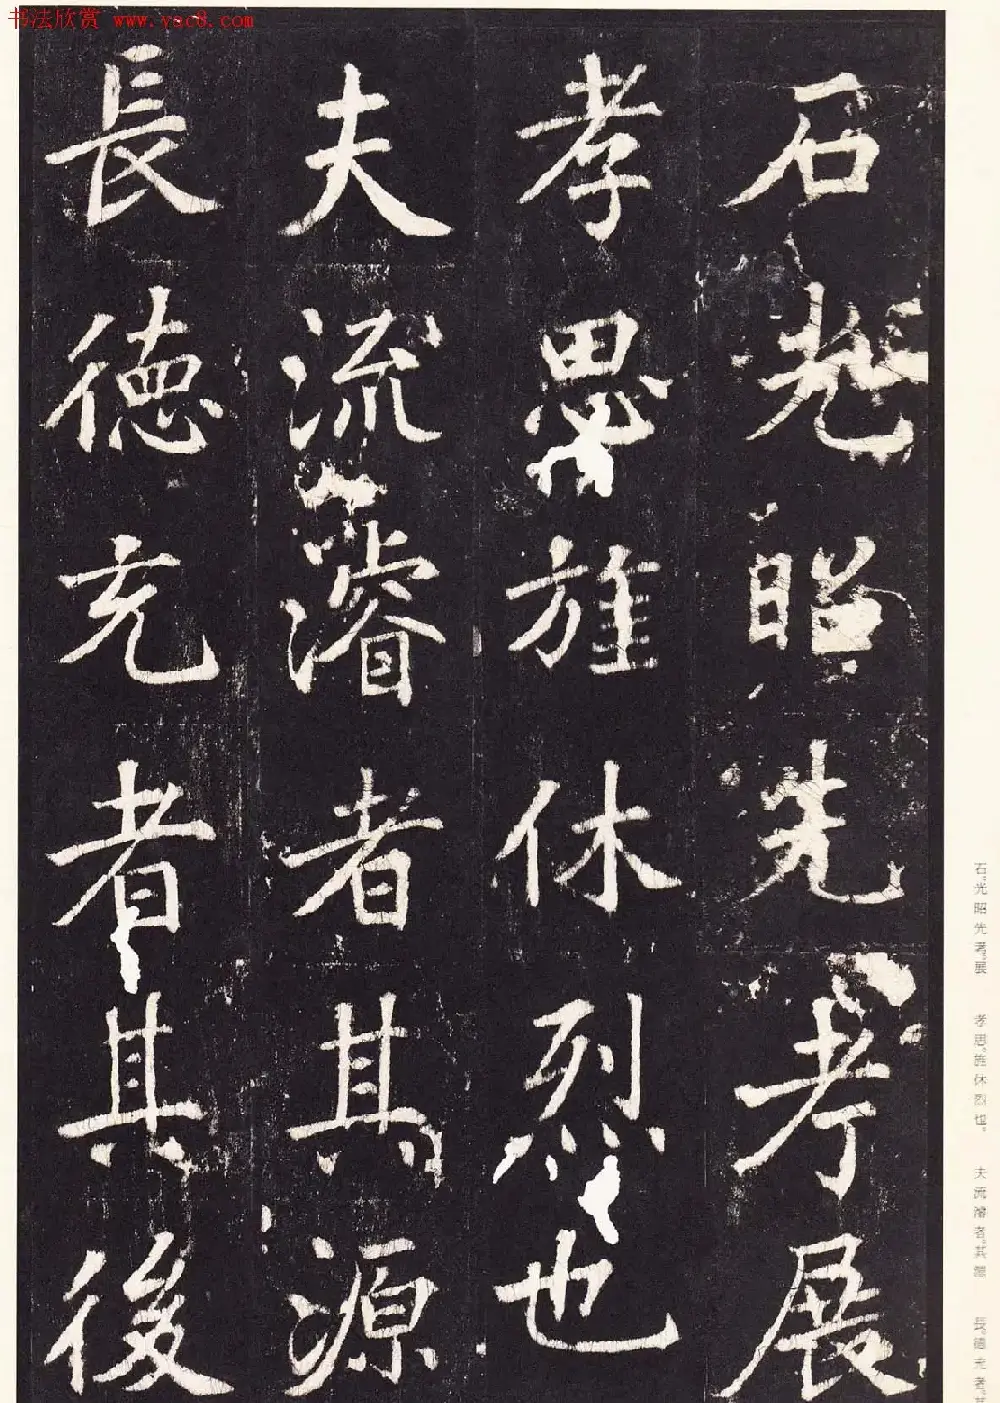 书法欣赏 www.yac8.com
石光昭先考展
孝思旌休烈也
夫流濬者其源
長德充者其後
石。光昭先考。展 孝思。旌休烈也。 夫流濬者。其源 長。德充者。其